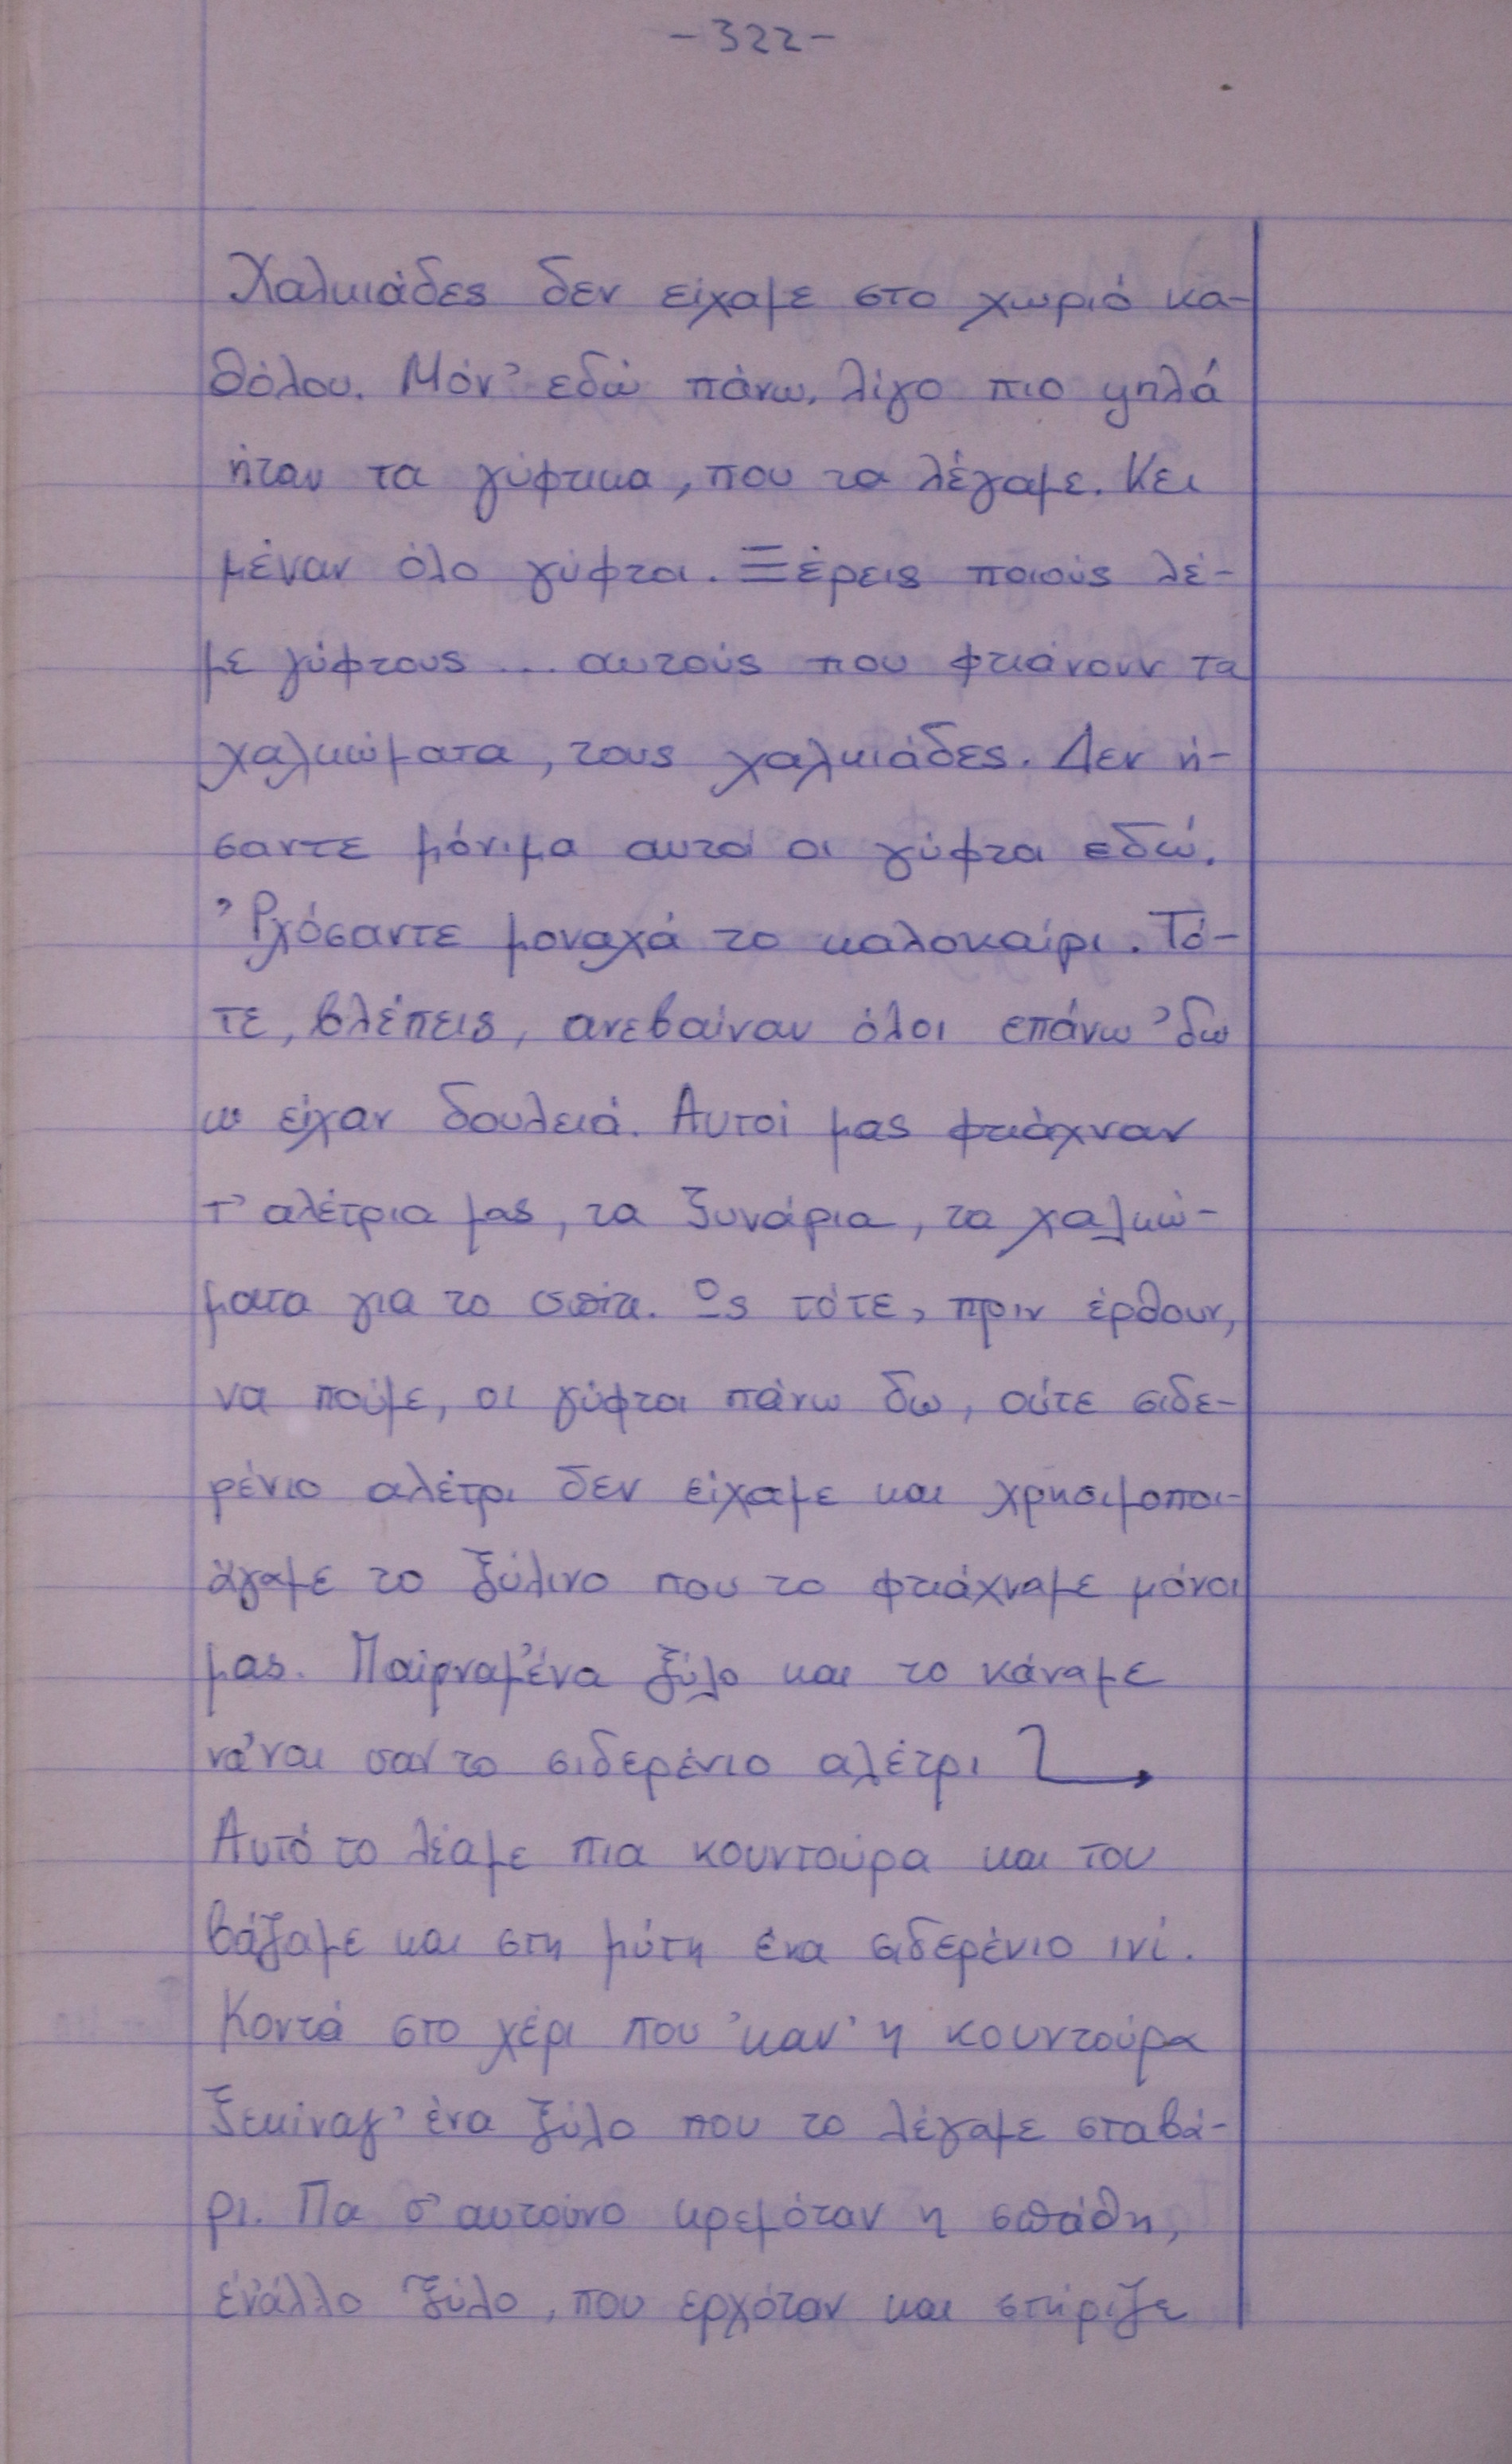 -322-
Χαλκιάδες δεν είχαμε στο χωριό κα-
θόλου. Μόν' εδώ πάνω, λίγο πιο ψηλά
ήταν τα γύφτικα, που τα λέγαμε. Κει
μέναν όλο γύφτοι. Ξέρεις ποιούς λέ-
με γύφτους ... αυτούς που φτιάνουν τα
χαλκώματα, τους χαλκιάδες. Δεν ή-
σαντε μόνιμα αυτοί οι γύφτοι εδώ.
'Ρχόσαντε μοναχά το καλοκαίρι. Τό-
τε, βλέπεις, ανεβαίναν όλοι επάνω 'δω
κι είχαν δουλειά. Αυτοί μας φτιάχναν
τ' αλέτρια μας, τα ξυνάρια, τα χαλκώ-
ματα για το σπίτι. Ως τότε, πριν έρθουν,
να πούμε, οι γύφτοι πάνω δω, ούτε σιδε-
ρένιο αλέτρι δεν είχαμε και χρησιμοποι-
άγαμε το ξύλινο που το φτιάχναμε μόνοι
μας. Παίρναμ' ένα ξύλο και το κάναμε
νά 'ναι σαν το σιδερένιο αλέτρι
Αυτό το λέαμε πια κουντούρα και του
βάζαμε και στη μύτη ένα σιδερένιο ινί.
Κοντά στο χέρι που 'καν' η κουντούρα
ξεκίναγ' ένα ξύλο που το λέγαμε σταβά-
ρι. Πα σ' αυτούνο κρεμόταν η σπάθη,
έν' άλλο ξύλο, που ερχόταν και στήριζε